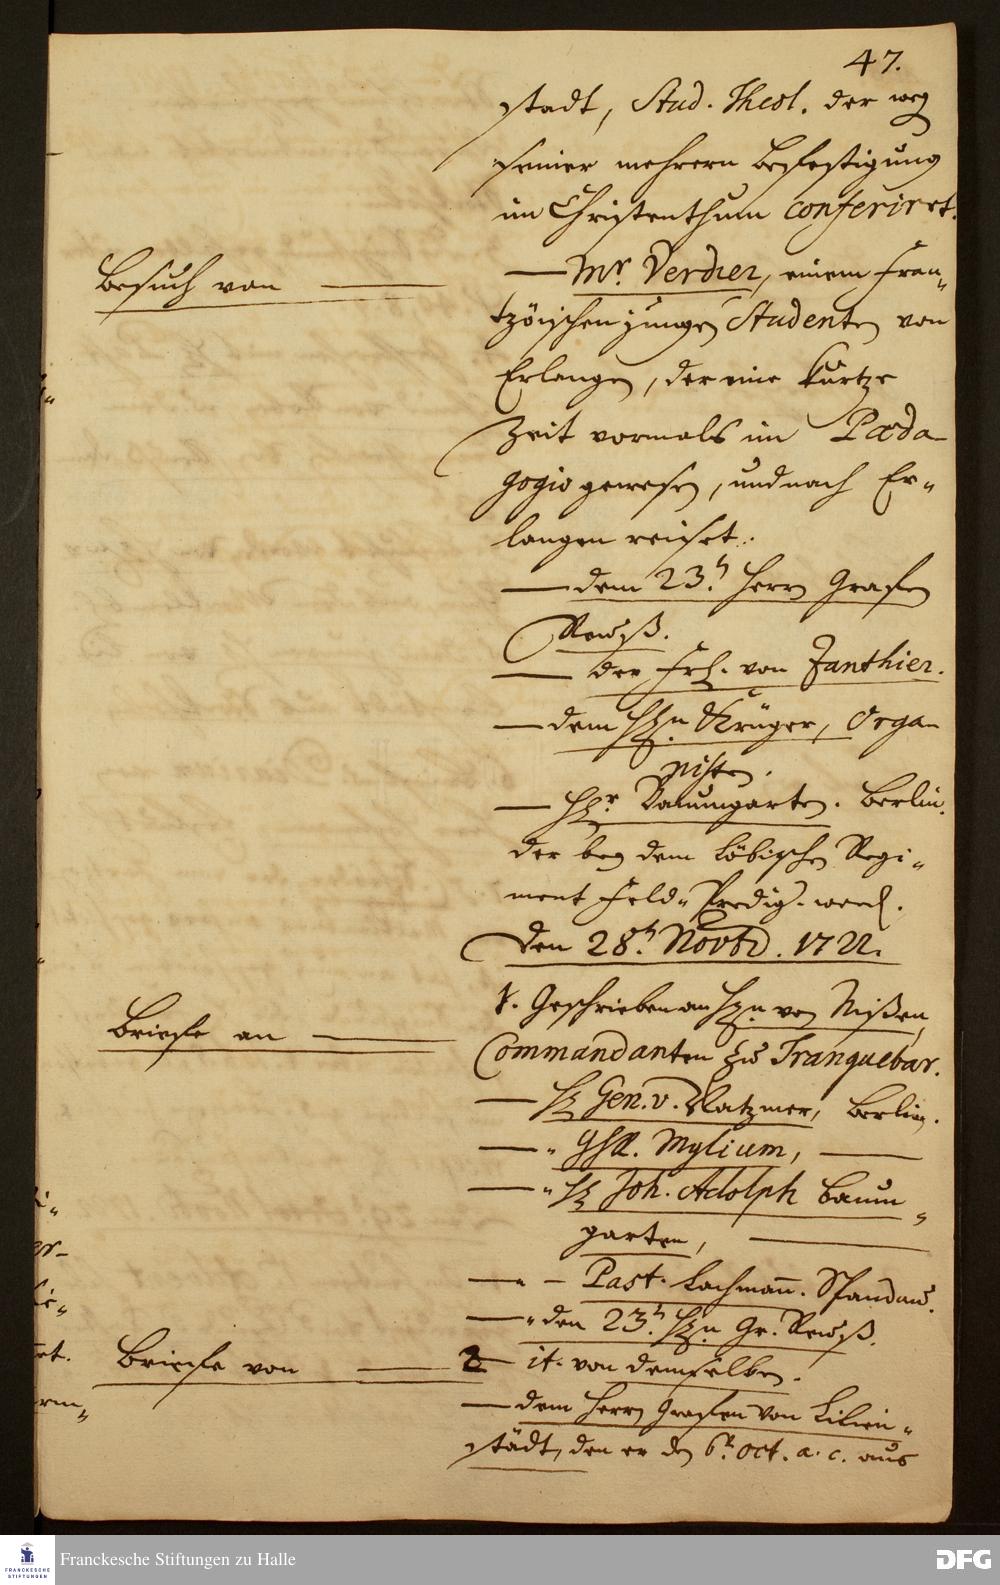 47.
stadt, Stud. Theol. der weg
seiner mehrern Befestigung
im Christenthum conferiret.
Besuch von — Mr. Verdier, einem Fran-
tzöischen jungen Studenten von
Erlangen, der eine kurtze
Zeit vormals im Pæda-
gogio gewesen, und nach Er-
langen reiset.
— dem 23.t Herrn Grafen
Reuß.
— der Frl. von Zanthier.
— dem HEn Krüger, Orga-
nisten.
— HEr Baumgarten. Berlin.
der bey dem Löbischen Regi-
ment Feld-Predig.
Den 28.t Novbr. 1722.
Briefe an — 1. Geschrieben an HEn von Nißen,
Commandanten zu Tranquebar.
— HE Gen. v. Natzmer, Berlin.
— " GHR. Mylium, —
— " HE Joh. Adolph Baum-
garten, —
— " — Past. Lachmann. Spandau.
— " den 23.t HEn Gr. Reuß.
Briefe von — 2 — it. von demselben.
— dem Herrn Grafen von Lilien-
städt, den er den 6.t Oct. a. c. aus
Franckesche Stiftungen zu Halle
FRANCKESCHE
STIFTUNGEN
DFG